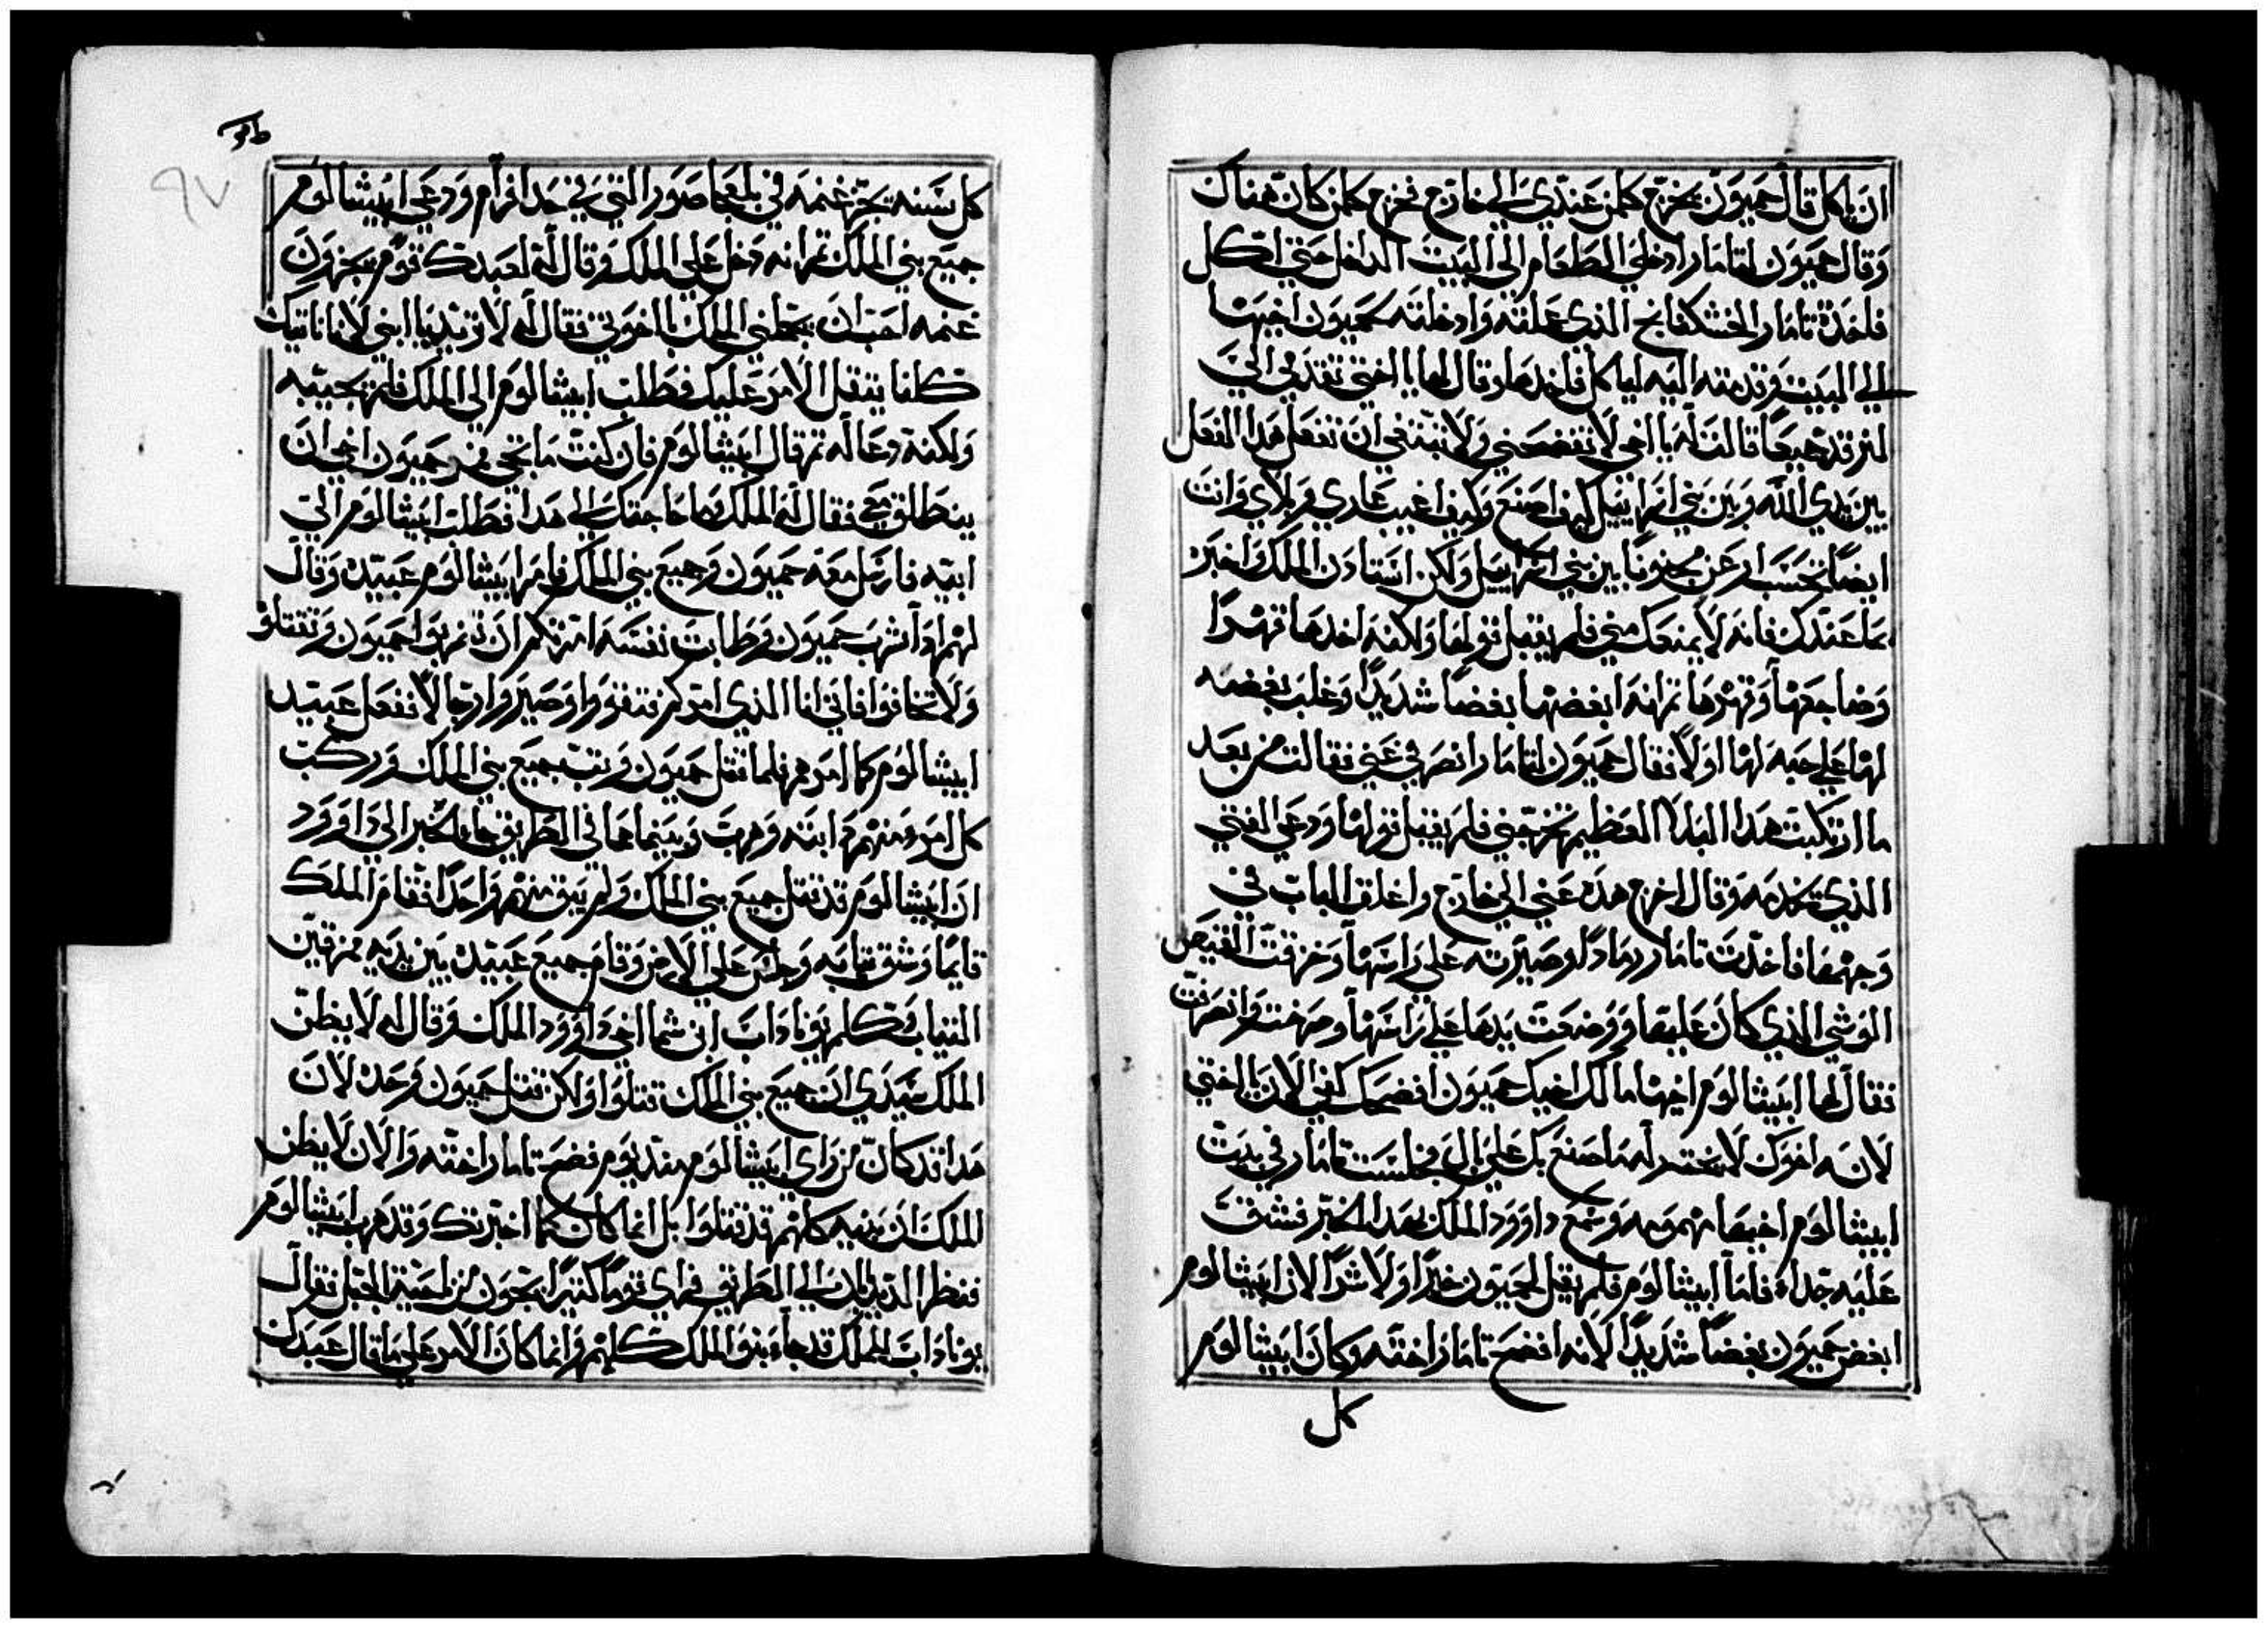 ان ياكل قال حميون يخرج كلمن عندي الى خارج فخرج كلمن كان هناك
وقال حميون لتامار ادخلي الطعام الى البيت الداخل حتى اكل
فاخدة تامار الخشكنانج الذي عملته وادخلته لحميون اخيها
الى البيت وقدمته اليه لياكل فاخدها وقال لها يا اختي تقدمي الي
لنرقد جميعا قالت له يا اخي لا تفضحني ولا ينبغي ان تفعل هدا الفعل
بين يدي الله وبين بني اسراييل كيف اصنع وكيف اغيب عاري وبلاي وانت
ايضا تحسب ارعن مجنونا بين بني اسراييل ولكن استادن الملك واخبره
بما عندك فانه لا يمنعك مني فلم يقبل قولها ولكنه اخدها قهرا
وضاجعها وقهرها ثم انه ابغضها بغضا شديدا وغلب بغضه
لها على حبه لها اولا فقال حميون لتامار انصرفي عني فقالت من بعد
ما ارتكبت هدا البلا العظيم تخرجني فلم يقبل قولها ودعى الفتى
الذي يخدمه وقال اخرج هده عني الى خارج واغلق الباب في
وجهها فاخدت تامار رمادا وصيرته على راسها وخرقت القميص
الوشي الذي كان عليها ووضعت يدها على راسها وصرخت وانصرفت
فقال لها ابيشالوم اخيها مالك اخيك حميون افضحك كفي الان يا اختي
لانه اخوك لا يخطر له ما صنع بك على بال فجلست تامار في بيت
ابيشالوم اخيها مهمومه وسمع داوود الملك بهدا الخبر فشق
عليه جدا فاما ابيشالوم فلم يقبل لحميون خيرا ولا شرا لان ابيشالوم
ابغض حميون بغضا شديدا لانه افضح تامار اخته وكان ابيشالوم
كل
٩٧
كل سنه يجز غنمه في بلعجاصور التي في حد افرام ودعى ابيشالوم
جميع بني الملك ثم انه دخل على الملك وقال له لعبدك قوم يجزون
غنمه احب ان يجلني الملك باخوتي فقال له لا تريد يا ابني لانا ناتيك
كلنا يتقل الامر عليك فطلب ابيشالوم الى الملك فلم يجيبه
ولكنه دعا له ثم قال ابيشالوم فان كنت ما تجي فمر حميون اخي ان
ينطلق معي فقال له الملك وما حاجتك الى هدا فطلب ابيشالوم الى
ابيه فارسل معه حميون وجميع بني الملك فامر ابيشالوم عبيده وقال
لهم ادا شرب حميون وطابت نفسه امرتكم ان تضربوا حميون وتقتلوه
ولا تخافوا فاني انا الذي امرتكم فتقووا وصيروا رجالا ففعل عبيد
ابيشالوم كما امرهم فلما قتل حميون وتب جميع بني الملك وركب
كل امرء منهم دابته وهرب وبينما هما في الطريق جاء الخبر الى داوود
ان ابيشالوم قد قتل جميع بني الملك ولم يبق منهم واحدا فقام الملك
قايما وشق تيابه وجلس على الارض وقام جميع عبيده بين يديه ممزقين
التياب فتكلم يوناداب ابن شما اخي داوود الملك وقال له لا يظن
الملك سيدي ان جميع بني الملك قتلوا ولكن قتل حميون وحده لان
هدا قد كان من راي ابيشالوم مند يوم فضح تامار اخته والان لا يظن
الملك ان بنيه كلهم قد قتلوا بل انما كان كما اخبرتك وقد هرب ابيشالوم
فنظر الديدبان الى الطريق فراي قوما كتيرا يجون من ناحية الجبل فقال
يوناداب للملك قد جاء بنو الملك كلهم وانما كان الامر على ما قال عبدك